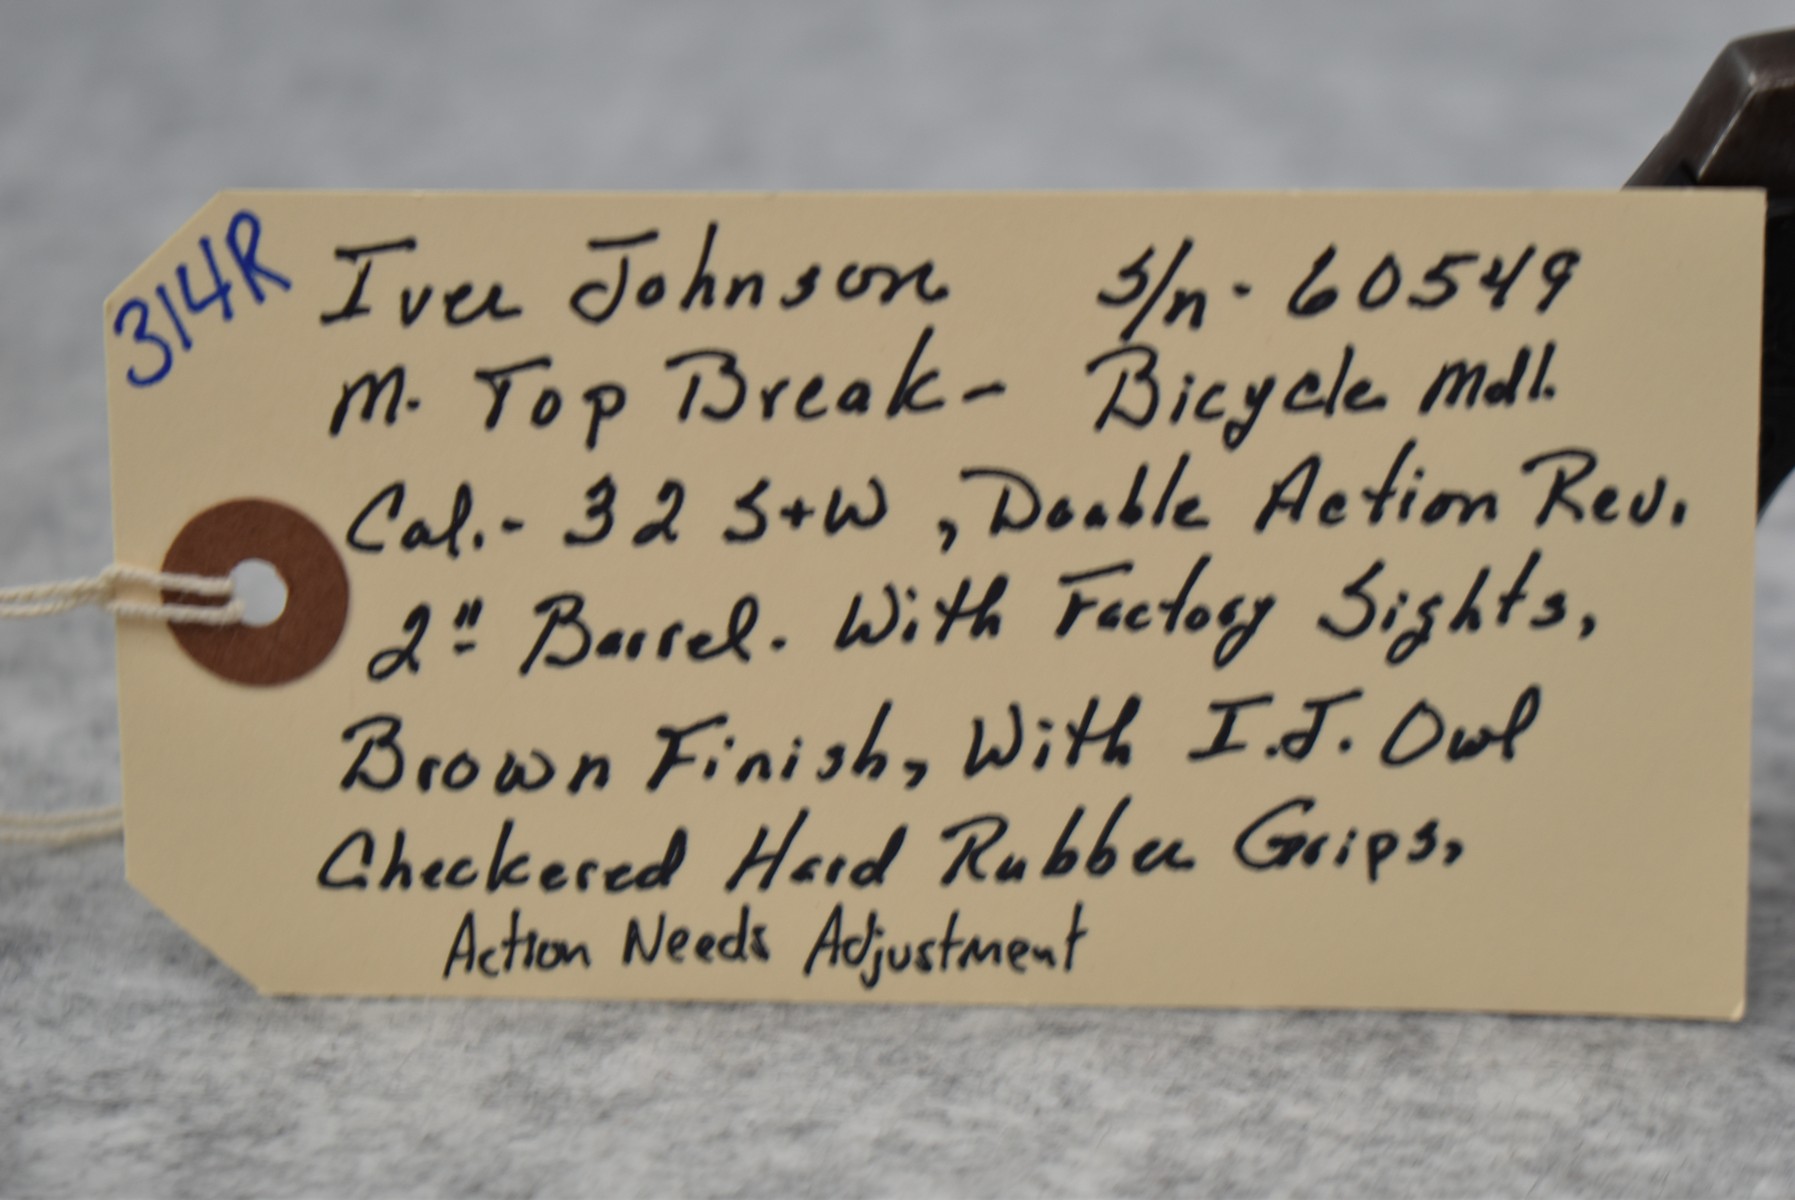 314R
Iver Johnson s/n - 60549
M. Top Break - Bicycle Mdl.
Cal. - 32 S+W, Double Action Rev.
2" Barrel. With Factory Sights,
Brown Finish, With I.J. Owl
Checkered Hard Rubber Grips,
Action Needs Adjustment